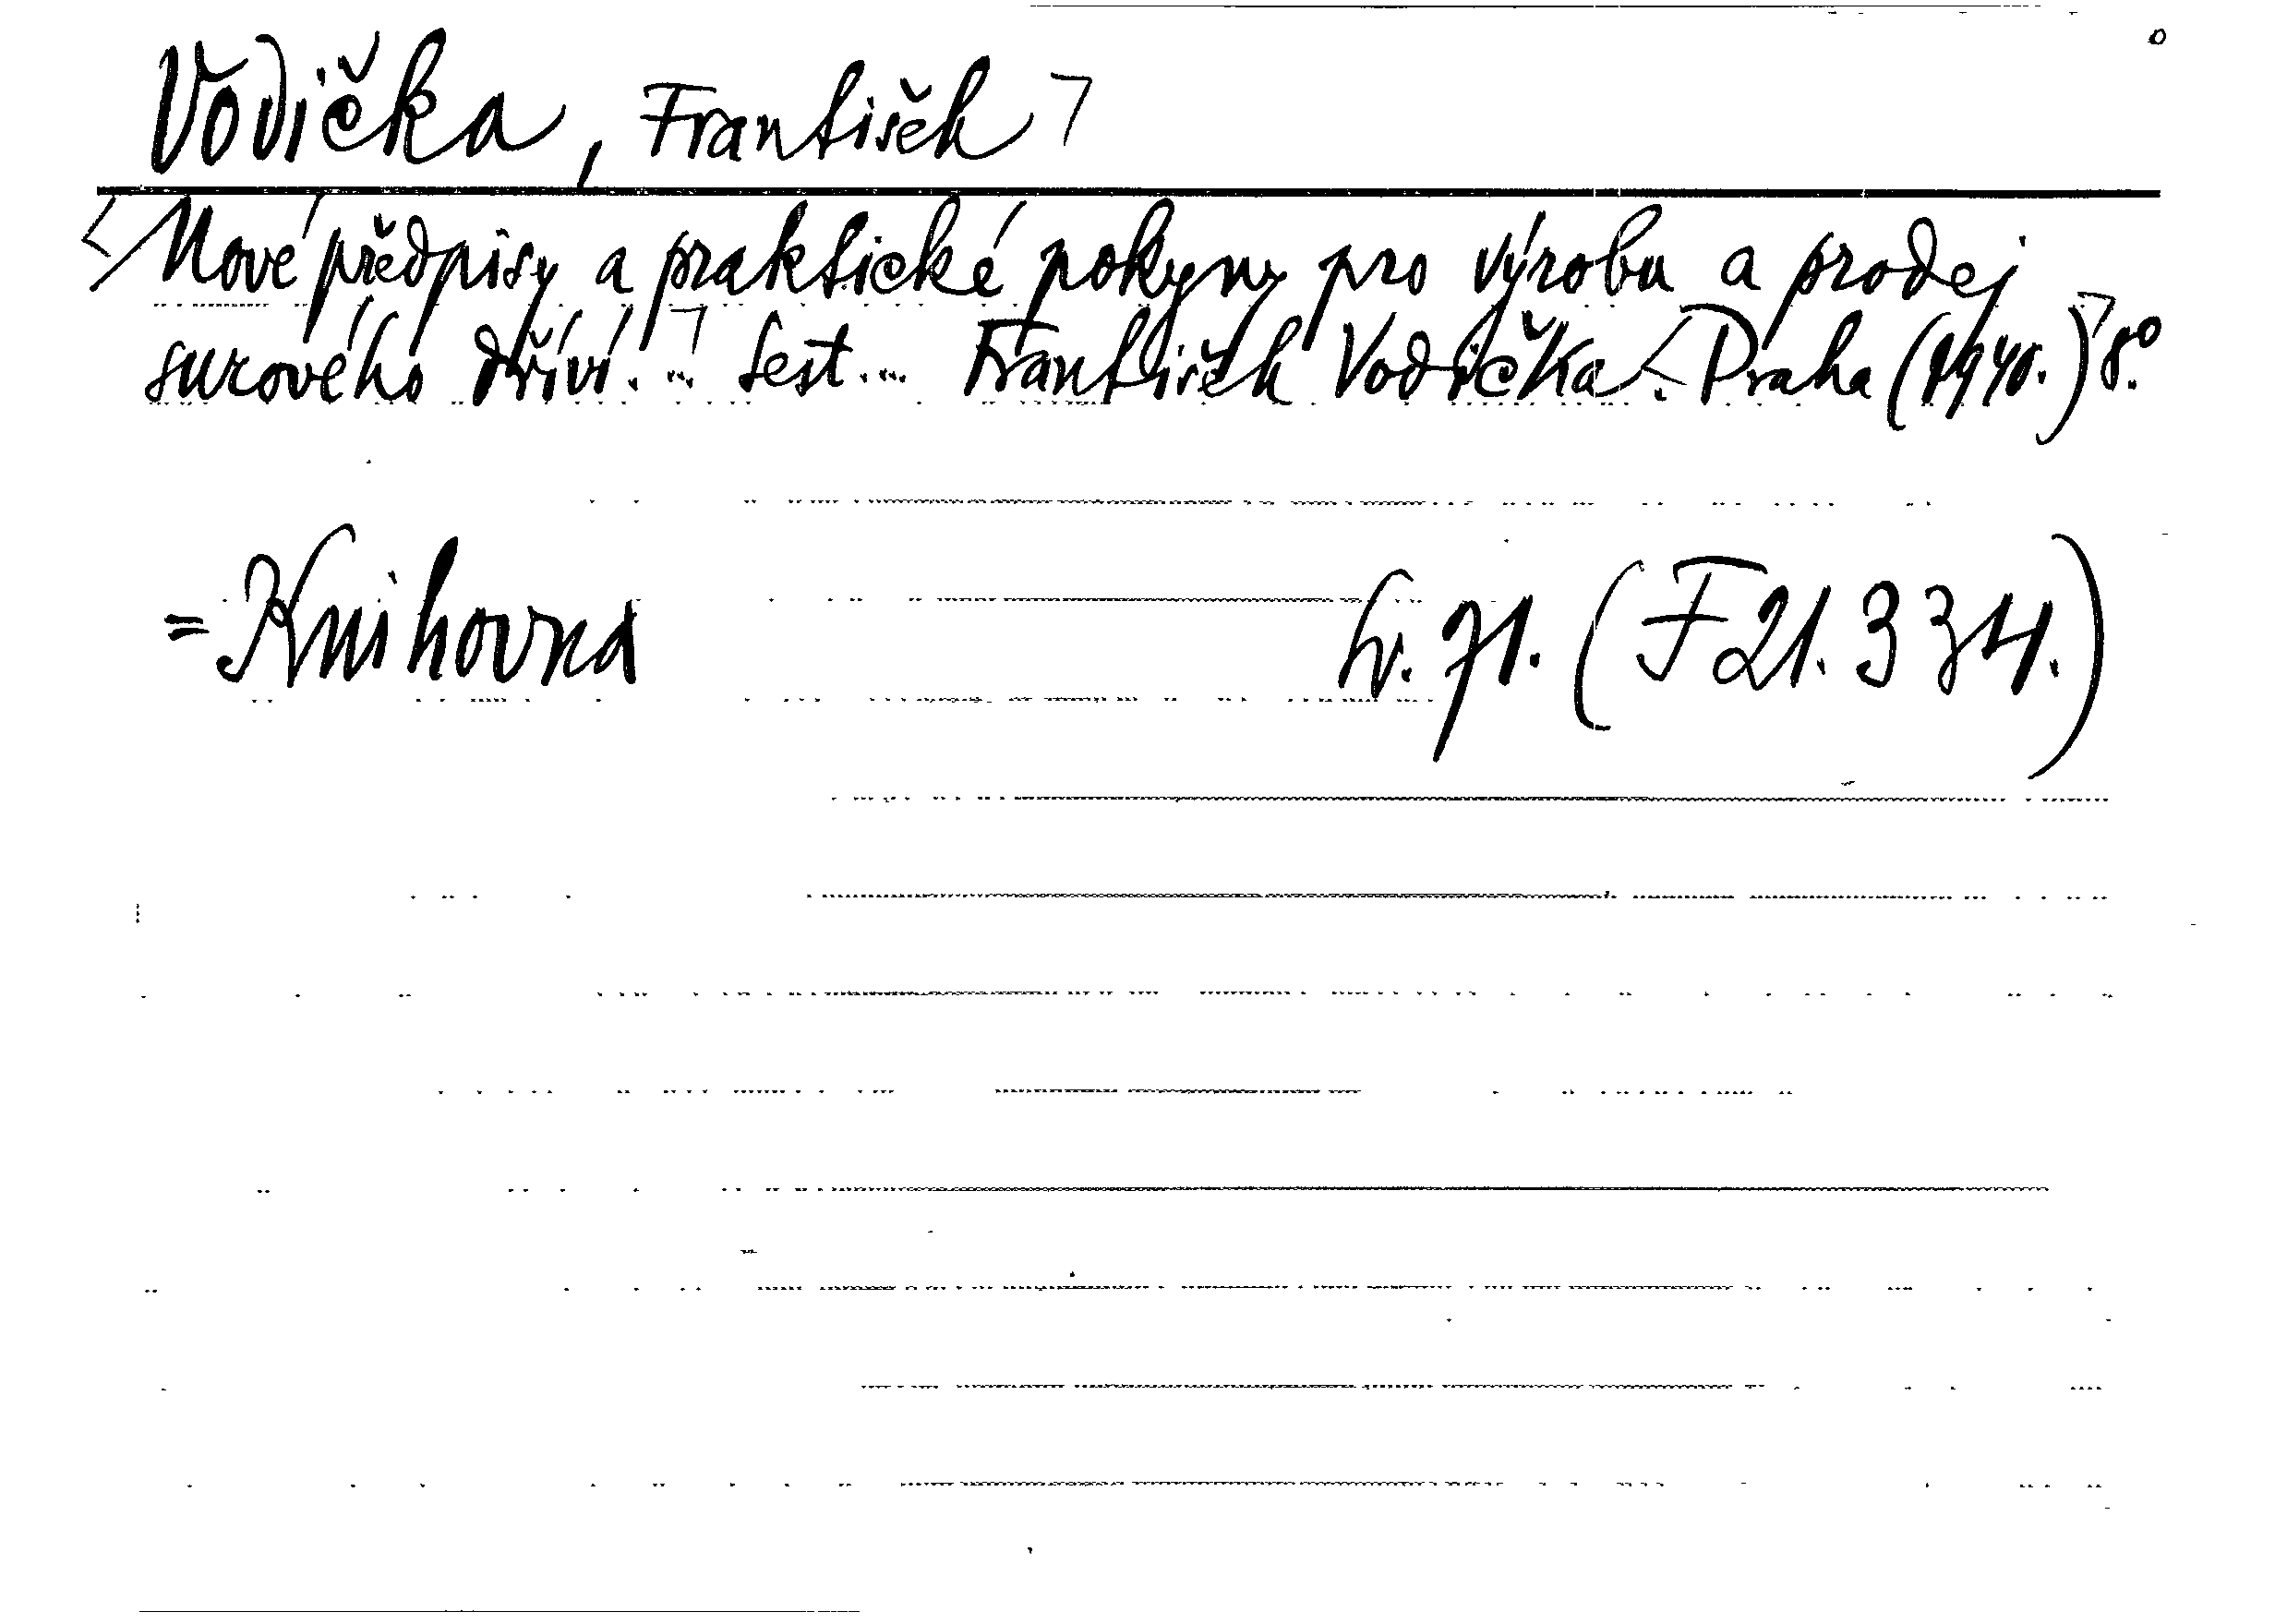 Vodička, František
Nové předpisy a praktické pokyny pro výrobu a prodej
surového dříví. ... Sest. ... František Vodička. Praha (1940.) 8.°
= Knihovna sv. 71. (F 21.334.)